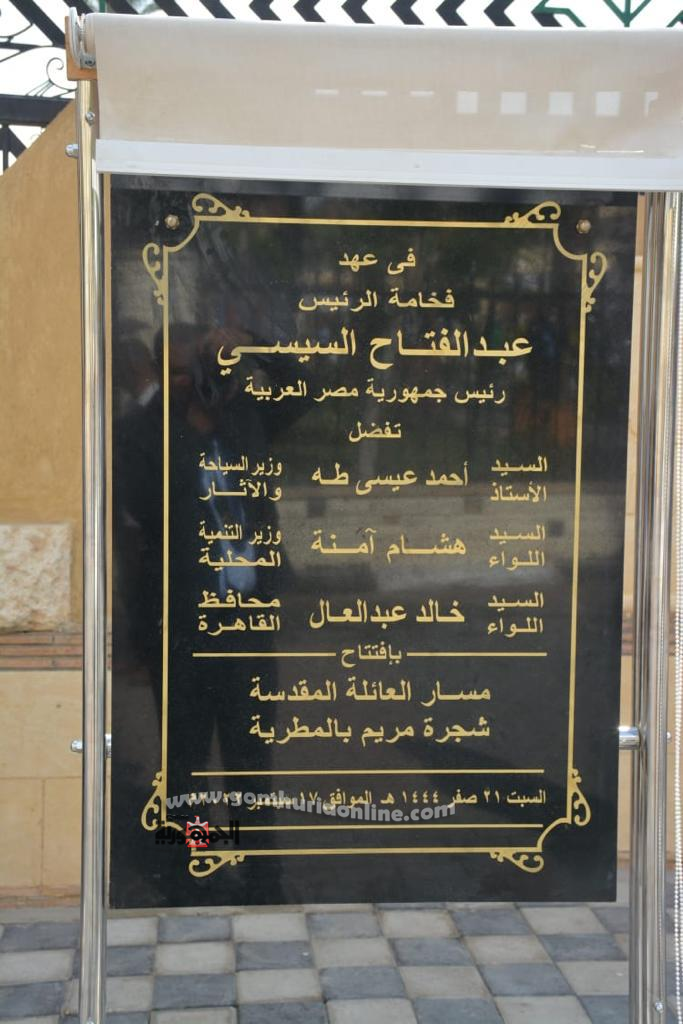 فى عهد
فخامة الرئيس
عبدالفتاح السيسي
رئيس جمهورية مصر العربية
تفضل
السيد الأستاذ أحمد عيسى طه وزير السياحة والآثار
السيد اللواء هشام آمنة وزير التنمية المحلية
السيد اللواء خالد عبدالعال محافظ القاهرة
بإفتتاح
مسار العائلة المقدسة
شجرة مريم بالمطرية
السبت ٢١ صفر ١٤٤٤ هـ الموافق ١٧ سبتمبر
www.gomhuriaonline.com
الجمهورية